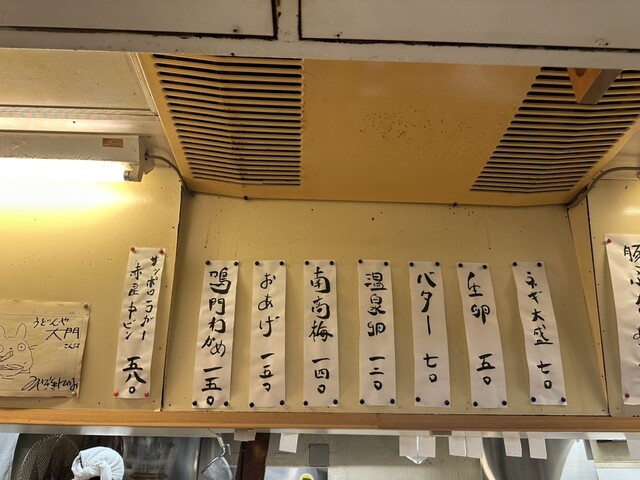 豚
ネギ大盛 七〇
生卵 五〇
バター 七〇
温泉卵 一二〇
南高梅 一四〇
おあげ 一五〇
鳴門わかめ 一五〇
サッポロラガー
赤星中ビン 五八〇
うどんや
大門
さんへ